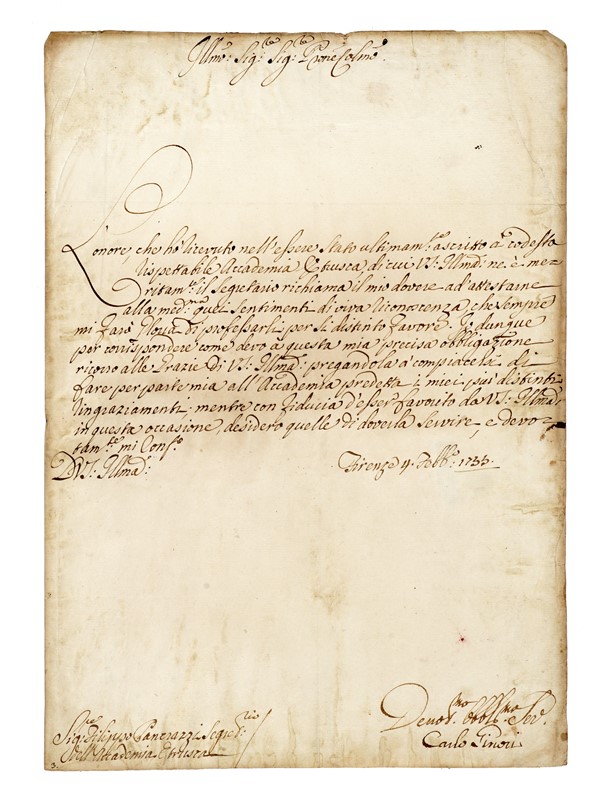 Illmo: Sigre Sigre Prone Colmo.
L'onore, che hò ricevuto nell'essere stato ultimamte ascritto à codesta
rispettabile Accademia Etrusca di cui V.S. Illma: ne è me-
ritamte il Segretario richiama il mio dovere ad'attestarne
alla medma quei sentimenti di viva riconoscenza, che sempre
mi farò gloria di professarli per sì distinto favore. Io dunque
per corrispondere come devo à questa mia precisa obbligazione
ricorro alle Grazie di V.S. Illma: pregandola à compiacersi di
fare per parte mia all'Accademia predetta i miei più distinti
ringraziamenti, mentre con fiducia d'esser favorito da V.S. Illma:
in questa occasione, desidero quelle di doverla servire, e devo-
tamte mi confo
D V.S. Illma:
Firenze 4. Febbo. 1735.
Devotmo Obbligmo Serv.
Carlo Ginori
Sigre Filippo Pancrazzi Segretrio
dell'Accademia Etrusca
3.